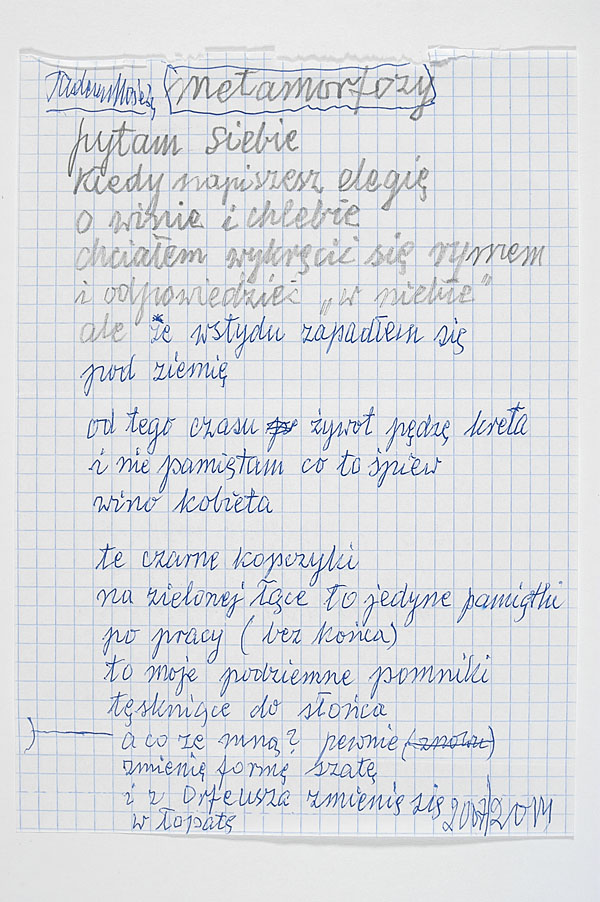 Tadeusz Różewicz metamorfozy
pytam siebie
kiedy napiszesz elegię
o winie i chlebie
chciałem wykręcić się rymem
i odpowiedzieć „w niebie”
ale ze wstydu zapadłem się
pod ziemię
od tego czasu żywot pędzę kreta
i nie pamiętam co to śpiew
wino kobieta
te czarne kopczyki
na zielonej łące to jedyne pamiątki
po pracy (bez końca)
to moje podziemne pomniki
tęskniące do słońca
a co ze mną? pewnie (znowu)
zmienię formę szatę
i z Orfeusza zmienię się
w łopatę